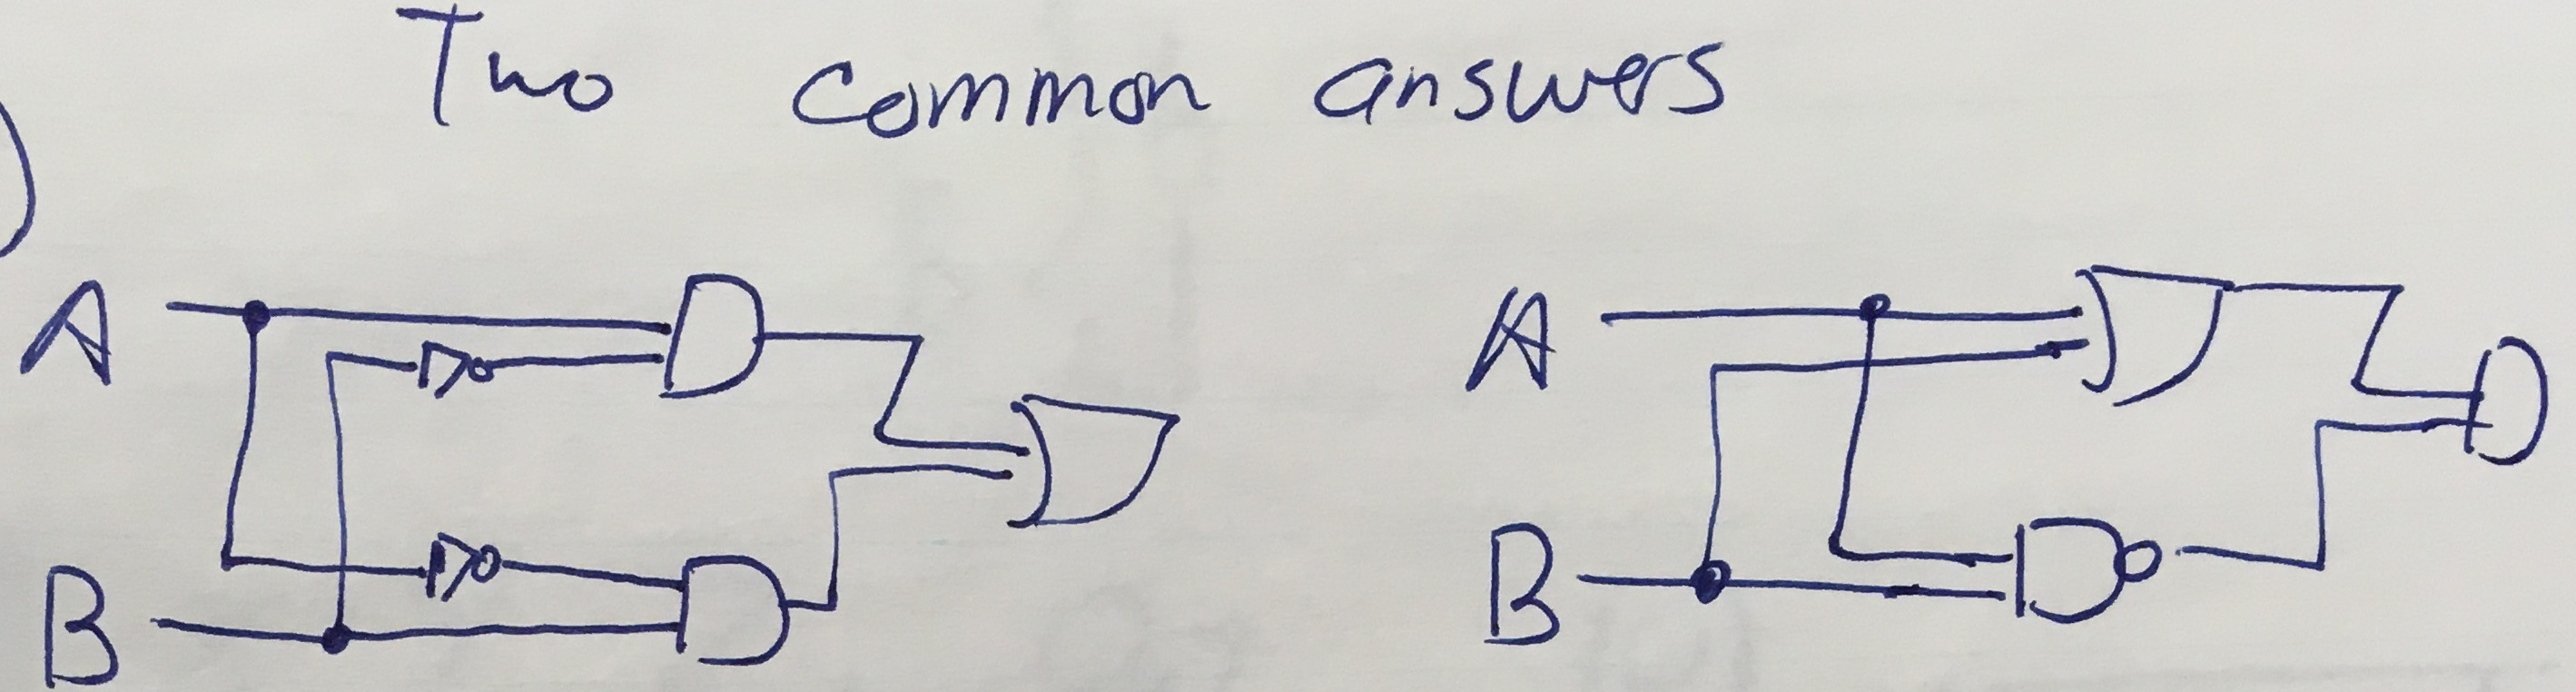 Two common answers
)
A
A
B
B